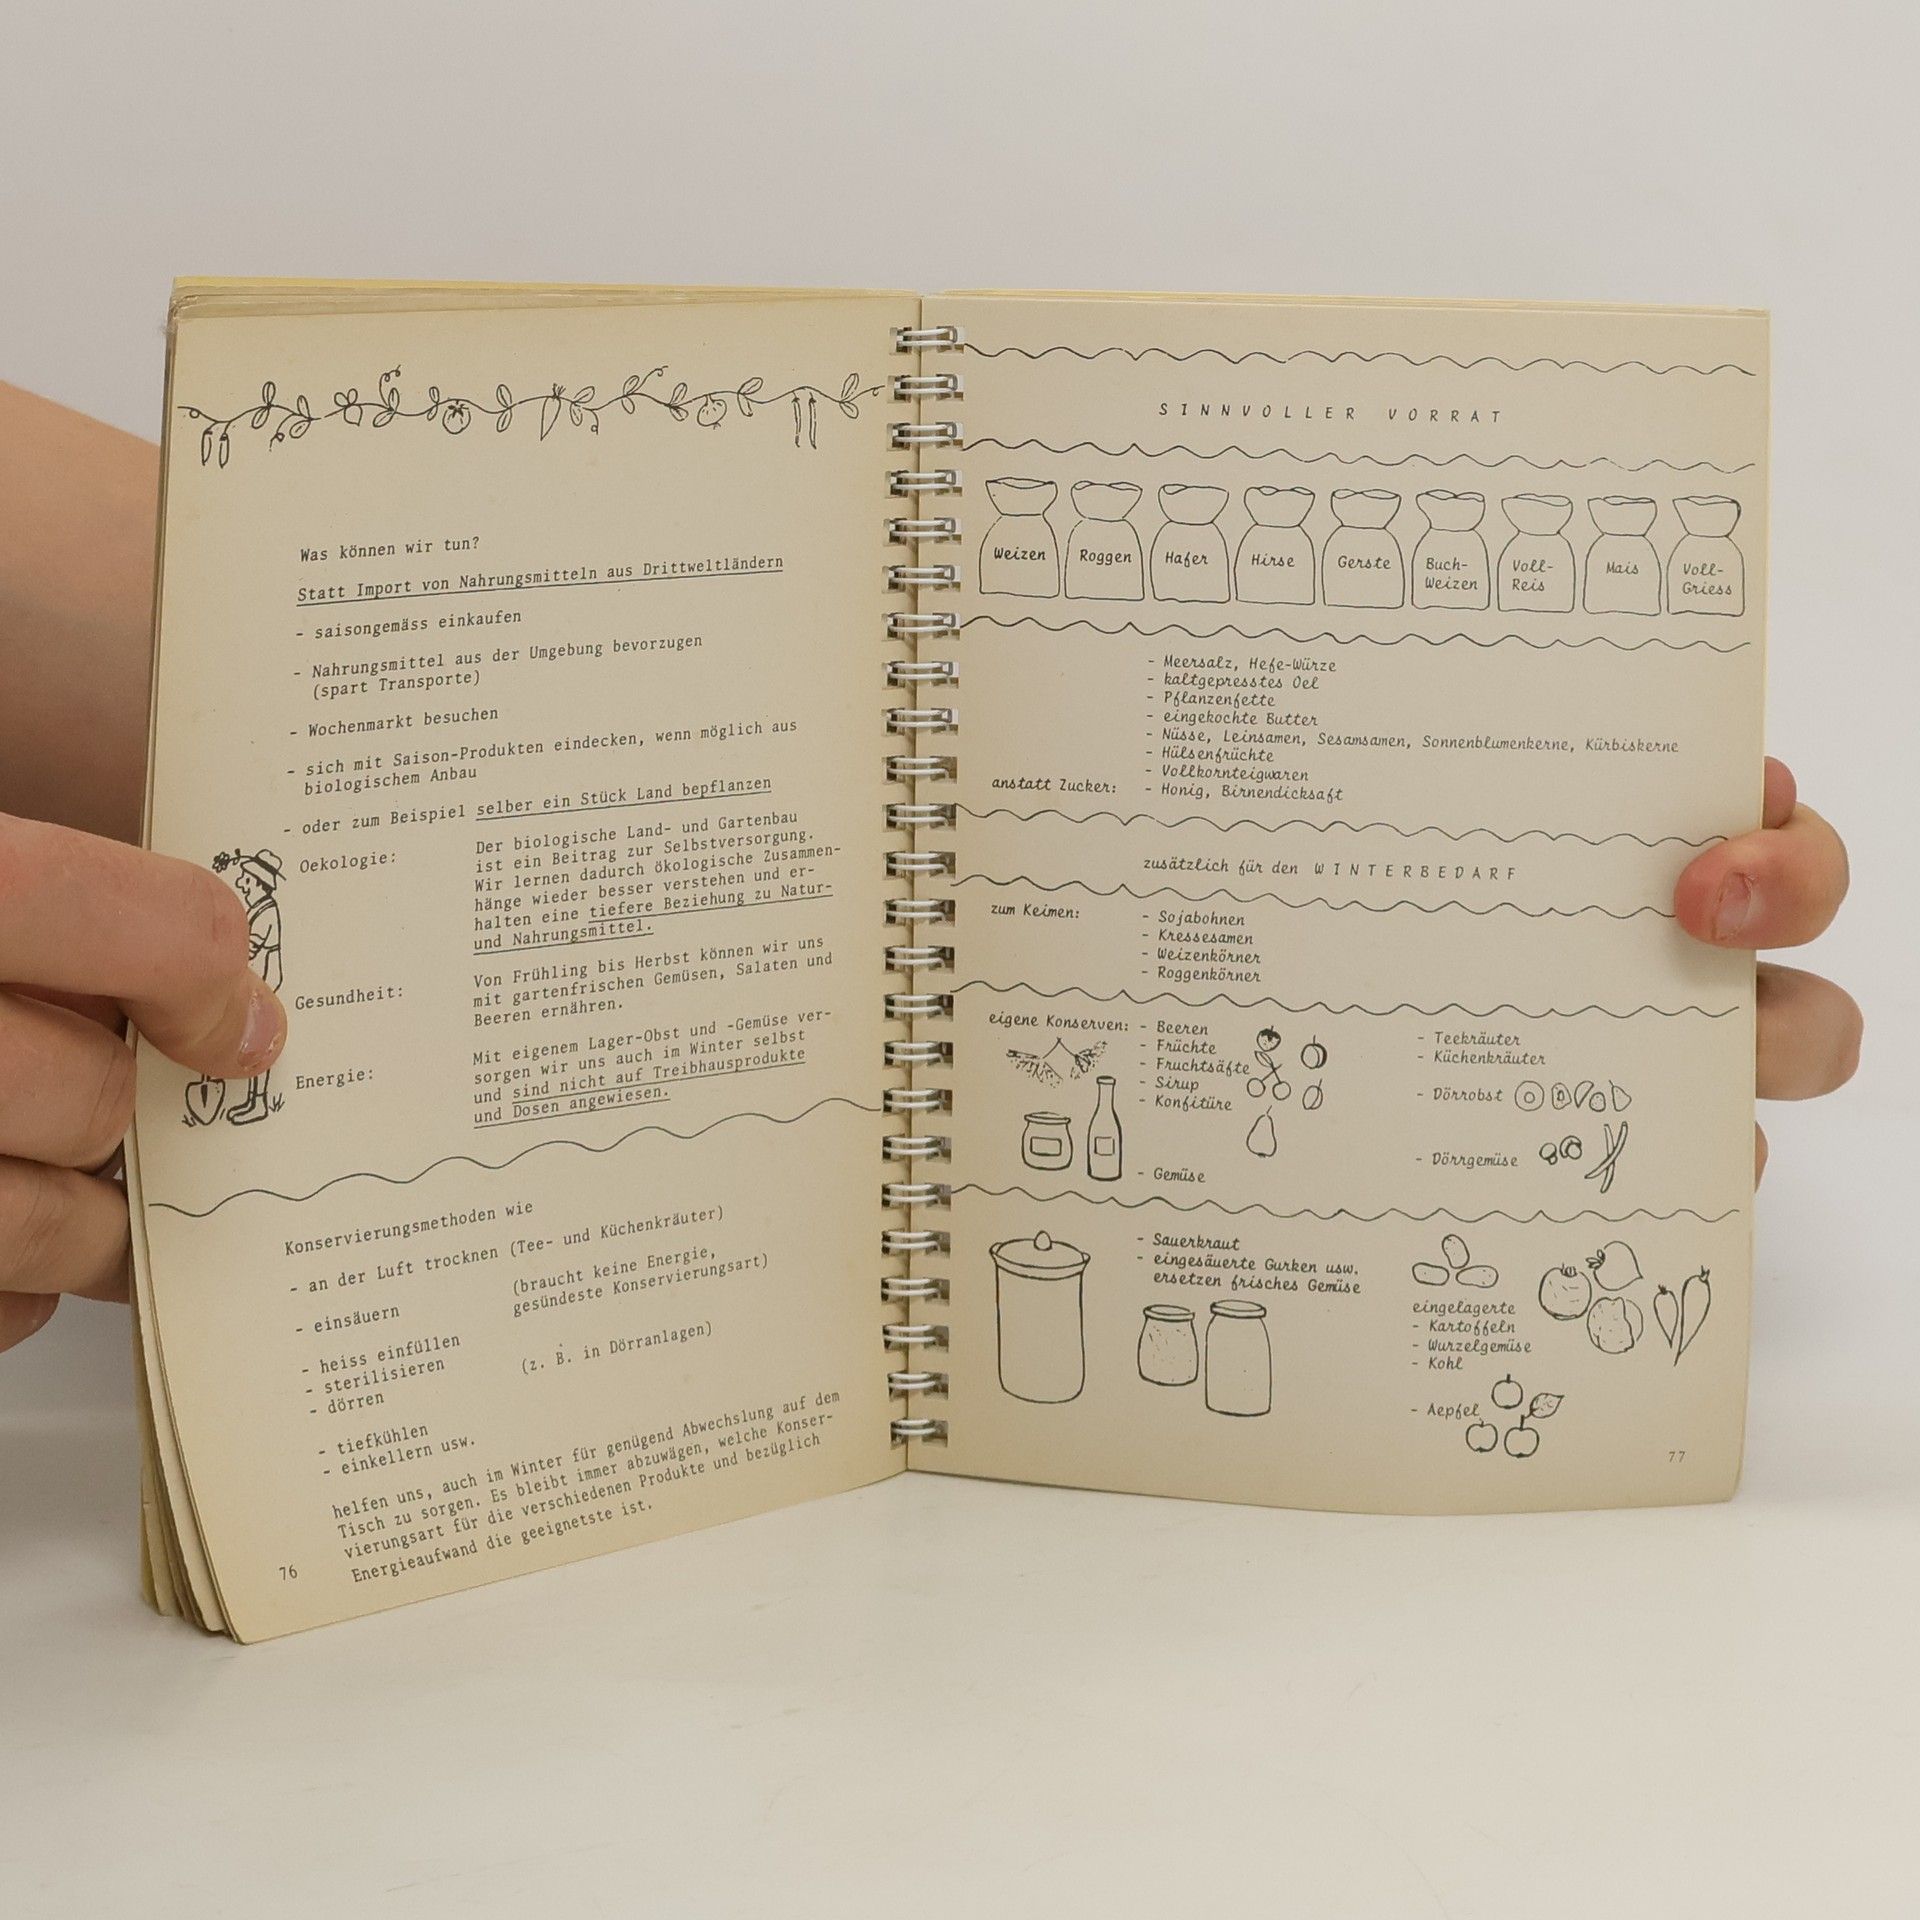 Was können wir tun?
Statt Import von Nahrungsmitteln aus Drittweltländern
- saisongemäss einkaufen
- Nahrungsmittel aus der Umgebung bevorzugen
(spart Transporte)
- Wochenmarkt besuchen
- sich mit Saison-Produkten eindecken, wenn möglich aus
biologischem Anbau
- oder zum Beispiel selber ein Stück Land bepflanzen
Oekologie:
Der biologische Land- und Gartenbau
ist ein Beitrag zur Selbstversorgung.
Wir lernen dadurch ökologische Zusammen-
hänge wieder besser verstehen und er-
halten eine tiefere Beziehung zu Natur-
und Nahrungsmittel.
Gesundheit:
Von Frühling bis Herbst können wir uns
mit gartenfrischen Gemüsen, Salaten und
Beeren ernähren.
Energie:
Mit eigenem Lager-Obst und -Gemüse ver-
sorgen wir uns auch im Winter selbst
und sind nicht auf Treibhausprodukte
und Dosen angewiesen.
Konservierungsmethoden wie
- an der Luft trocknen (Tee- und Küchenkräuter)
- einsäuern (braucht keine Energie,
gesündeste Konservierungsart)
- heiss einfüllen
- sterilisieren
- dörren (z. B. in Dörranlagen)
- tiefkühlen
- einkellern usw.
helfen uns, auch im Winter für genügend Abwechslung auf dem
Tisch zu sorgen. Es bleibt immer abzuwägen, welche Konser-
vierungsart für die verschiedenen Produkte und bezüglich
Energieaufwand die geeignetste ist.
76
SINNVOLLER VORRAT
Weizen Roggen Hafer Hirse Gerste Buch- Voll- Mais Voll-
Weizen Reis Griess
- Meersalz, Hefe-Würze
- kaltgepresstes Oel
- Pflanzenfette
- eingekochte Butter
- Nüsse, Leinsamen, Sesamsamen, Sonnenblumenkerne, Kürbiskerne
- Hülsenfrüchte
- Vollkornteigwaren
anstatt Zucker: - Honig, Birnendicksaft
zusätzlich für den WINTERBEDARF
zum Keimen: - Sojabohnen
- Kressesamen
- Weizenkörner
- Roggenkörner
eigene Konserven: - Beeren
- Früchte
- Fruchtsäfte
- Sirup
- Konfitüre
- Gemüse
- Teekräuter
- Küchenkräuter
- Dörrobst
- Dörrgemüse
- Sauerkraut
- eingesäuerte Gurken usw.
ersetzen frisches Gemüse
eingelagerte
- Kartoffeln
- Wurzelgemüse
- Kohl
- Aepfel
77